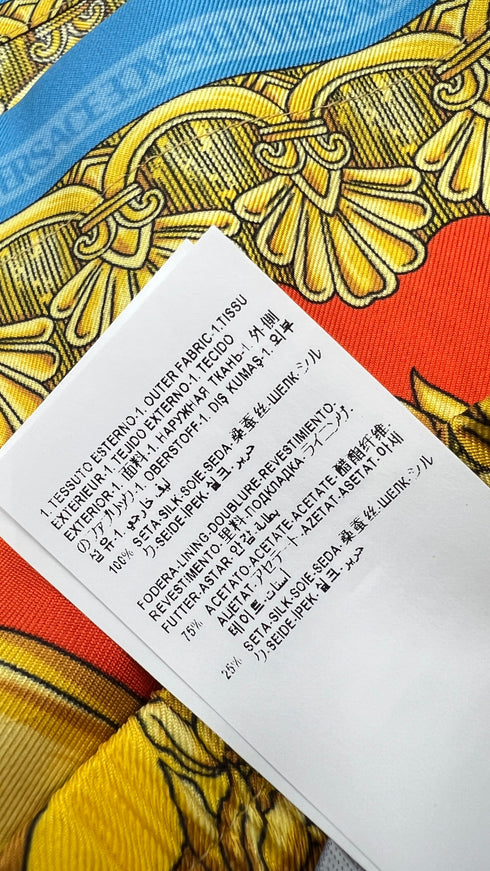 VERSACE
1. TESSUTO ESTERNO-1. OUTER FABRIC-1.TISSU
EXTERIEUR-1.TEJIDO EXTERNO-1. TECIDO
EXTERIOR-1. 面料-1. НАРУЖНАЯ ТКАНЬ-1. 外側
-1. OBERSTOFF-1. DIŞ KUMAŞ-1. 외부
섬유-1.
100% SETA-SILK-SOIE-SEDA-桑蚕丝-ШЕЛК-シル
ク-SEIDE-İPEK-실크-حرير
FODERA-LINING-DOUBLURE-REVESTIMIENTO-
REVESTIMENTO-里料-ПОДКЛАДКА-ライニング-
FUTTER-ASTAR-안감-بطانة
75% ACETATO-ACETATE-ACETATE-醋酯纤维-
АЦЕТАТ-アセテート-AZETAT-ASETAT-아세
테이트-أسيتات
25% SETA-SILK-SOIE-SEDA-桑蚕丝-ШЕЛК-シル
ク-SEIDE-İPEK-실크-حرير